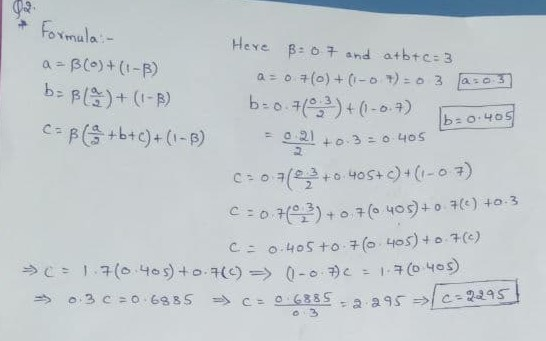 Q2.
* Formula:-
a = β(0) + (1-β)
b = β(a/2) + (1-β)
c = β(a/2 + b + c) + (1-β)
Here β = 0.7 and a+b+c = 3
a = 0.7(0) + (1-0.7) = 0.3 a = 0.3
b = 0.7(0.3/2) + (1-0.7)
= 0.21/2 + 0.3 = 0.405 b = 0.405
c = 0.7(0.3/2 + 0.405 + c) + (1-0.7)
c = 0.7(0.3/2) + 0.7(0.405) + 0.7(c) + 0.3
c = 0.405 + 0.7(0.405) + 0.7(c)
⇒ c = 1.7(0.405) + 0.7(c) ⇒ (1-0.7)c = 1.7(0.405)
⇒ 0.3c = 0.6885 ⇒ c = 0.6885/0.3 = 2.295 ⇒ c = 2295